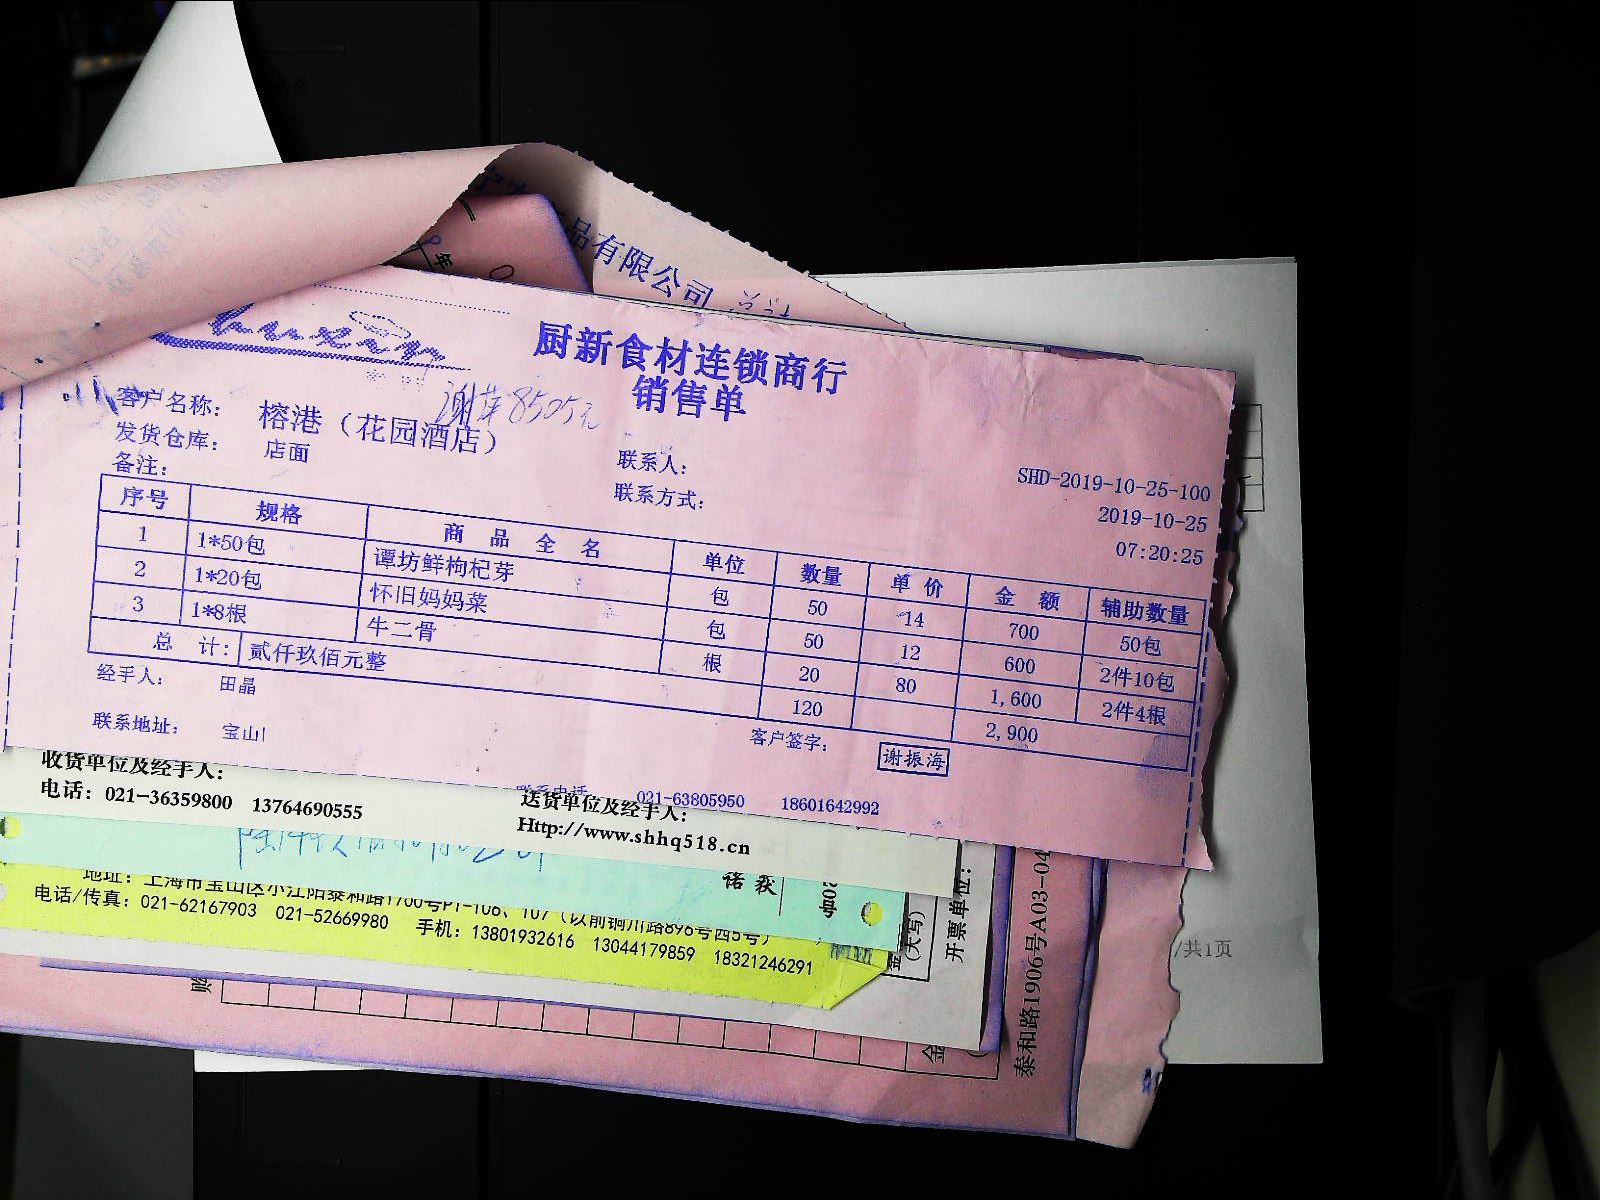 品有限公司
厨新食材连锁商行
销售单
客户名称： 榕港（花园酒店） 8505元
发货仓库： 店面 联系人：
备注： 联系方式：
SHD-2019-10-25-100
2019-10-25
07:20:25
序号 规格 商品全名 单位 数量 单价 金额 辅助数量
1 1*50包 谭坊鲜枸杞芽 包 50 14 700 50包
2 1*20包 怀旧妈妈菜 包 50 12 600 2件10包
3 1*8根 牛二骨 根 20 80 1,600 2件4根
总计： 贰仟玖佰元整 120 2,900
经手人： 田晶 客户签字： 谢振海
联系地址： 宝山
联系电话 021-63805950 18601642992
收货单位及经手人： 送货单位及经手人：
电话：021-36359800 13764690555 Http://www.shhq518.cn
地址：上海市宝山区小江阳泰和路1700号P1-106、107（以前铜川路896号西5号）
电话/传真：021-62167903 021-52669980 手机：13801932616 13044179859 18321246291
（大写）
开票单位：
泰和路1906号A03-04
/共1页